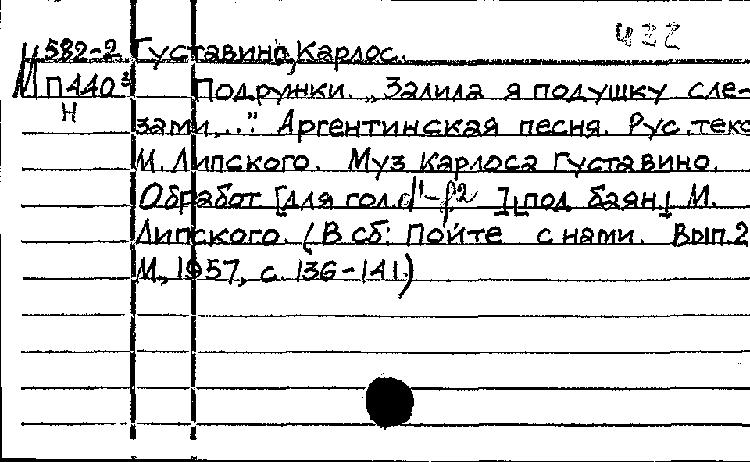 432
М 582-2 Густавино, Карлос.
П440³ Подружки. „Залила я подушку сле-
Н зами..." Аргентинская песня. Рус. текс
М. Липского. Муз Карлоса Густавино.
Обработ [для гол. d'-f2 ], [под баян] М.
Липского. (В сб: Пойте с нами. Вып. 2
М., 1957, с. 136-141.)